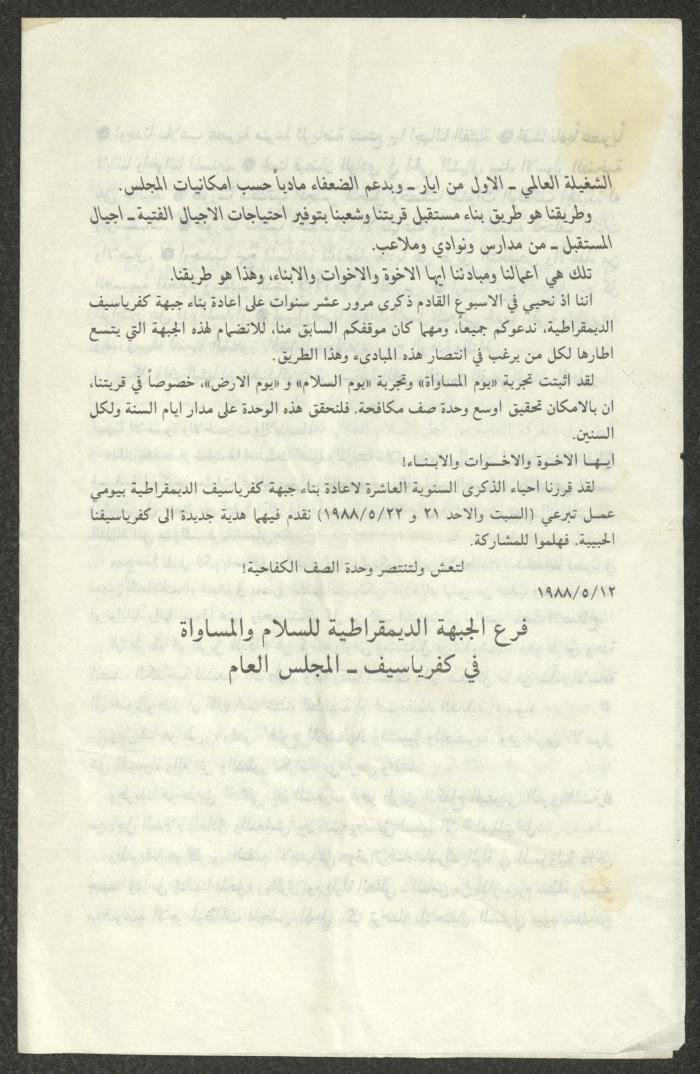 الشغيلة العالمي ــ الاول من ايار ــ وبدعم الضعفاء مادياً حسب امكانيات المجلس.
وطريقنا هو طريق بناء مستقبل قريتنا وشعبنا بتوفير احتياجات الاجيال الفتية ــ اجيال
المستقبل ــ من مدارس ونوادي وملاعب.
تلك هي اعمالنا ومبادئنا ايها الاخوة والاخوات والابناء، وهذا هو طريقنا.
اننا اذ نحيي في الاسبوع القادم ذكرى مرور عشر سنوات على اعادة بناء جبهة كفرياسيف
الديمقراطية، ندعوكم جميعاً، ومهما كان موقفكم السابق منا، للانضمام لهذه الجبهة التي يتسع
اطارها لكل من يرغب في انتصار هذه المبادىء وهذا الطريق.
لقد اثبتت تجربة «يوم المساواة» وتجربة «يوم السلام» و «يوم الارض»، خصوصاً في قريتنا،
ان بالامكان تحقيق اوسع وحدة صف مكافحة. فلنحقق هذه الوحدة على مدار ايام السنة ولكل
السنين.
ايـهـا الاخـوة والاخـوات والابـنـاء!
لقد قررنا احياء الذكرى السنوية العاشرة لاعادة بناء جبهة كفرياسيف الديمقراطية بيومي
عمـل تبرعي (السبت والاحد ٢١ و ١٩٨٨/٥/٢٢) نقدم فيهما هدية جديدة الى كفرياسيفنا
الحبيبة. فهلموا للمشاركة.
لتعش ولتنتصر وحدة الصف الكفاحية!
١٩٨٨/٥/١٢
فرع الجبهة الديمقراطية للسلام والمساواة
في كفرياسيف ــ المجلس العام